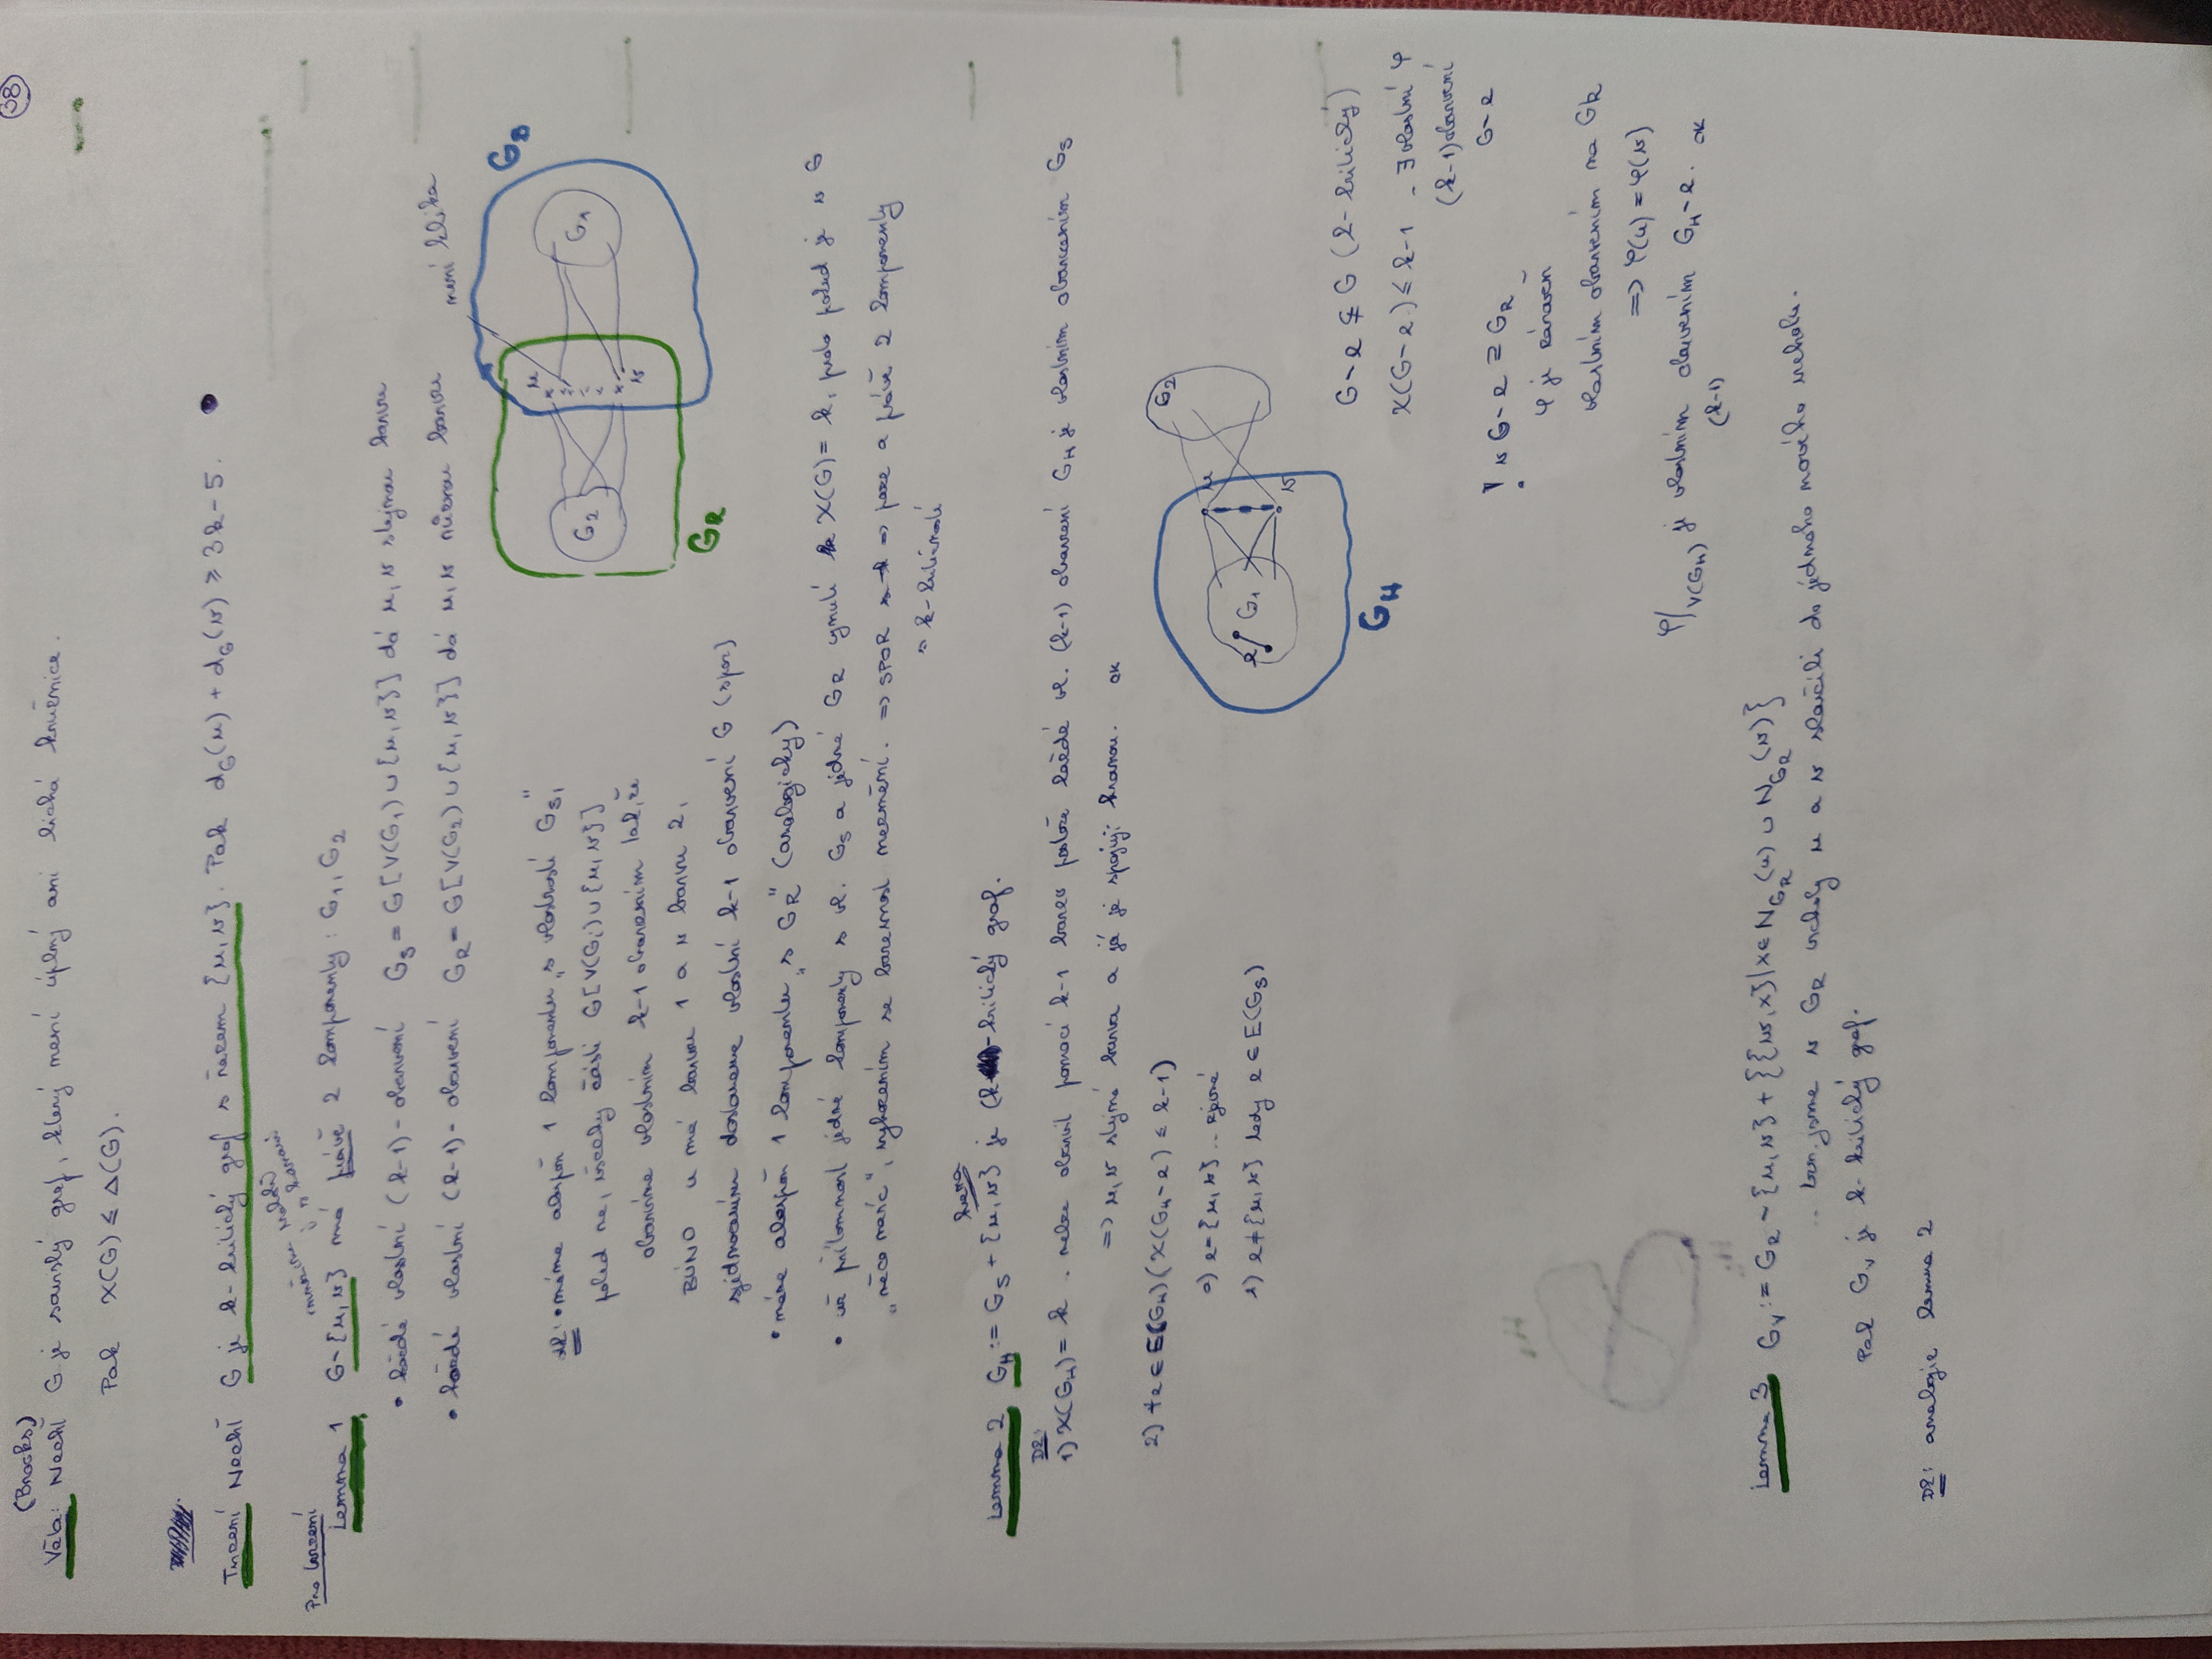 38
(Brooks)
Věta: Nechť G je souvislý graf, který není úplný ani lichá kružnice.
Pak χ(G) ≤ Δ(G).
Tvrzení Nechť G je k-kritický graf s řezem {u,v}. Pak d_G(u) + d_G(v) ≥ 3k-5.
Pro tvrzení
Lemma 1 G~{u,v} má právě 2 komponenty: G1, G2
• každé vlastní (k-1)-obarvení G_S = G[V(G1) ∪ {u,v}] dá u,v stejnou barvu
• každé vlastní (k-1)-obarvení G_R = G[V(G2) ∪ {u,v}] dá u,v různou barvu
není klika
G_S
G1
u
v
G2
G_R
DK: • máme alespoň 1 komponentu „s vlastností G_S",
pokud ne, všechny části G[V(Gi) ∪ {u,v}]
obarvíme vlastním k-1 obarvením tak, že
BÚNO u má barvu 1 a v barvu 2,
sjednocením dostaneme vlastní k-1 obarvení G (spor)
• máme alespoň 1 komponentu „s G_R" (analogicky)
• už přítomnost jedné komponenty s vl. G_S a jedné G_R vynutí χ(G) = k, proto pokud je v G
„něco navíc", vyhozením se barevnost nezmění. ⇒ SPOR ⇒ pouze a právě 2 komponenty
s k-kritičností
Lemma 2 G_H := G_S + {u,v} je k-kritický graf.
hrana
DK:
1) χ(G_H) = k. nelze obarvit pomocí k-1 barev protože každé vl. (k-1) obarvení G_H je vlastním obarvením G_S
⇒ u,v stejná barva a já je spojuji hranou. OK
2) ∀e ∈ E(G_H) (χ(G_H~e) ≤ k-1)
0) e={u,v} .. zjevné
1) e≠{u,v} tedy e ∈ E(G_S)
G2
u
v
G1
e
G_H
G~e ⊊ G (k-kritický)
χ(G~e) ≤ k-1 - ∃ vlastní φ
(k-1) obarvení
G~e
! v G~e ⊇ G_R
φ je zároveň
vlastním obarvením na G_R
⇒ φ(u) = φ(v)
φ|V(G_H) je vlastním obarvením G_H~e. OK
(k-1)
Lemma 3 G_V := G_R ~ {u,v} + {{w,x} | x ∈ N_{G_R}(u) ∪ N_{G_R}(v)}
.. tzn. jsme v G_R vrcholy u a v stlačili do jednoho nového vrcholu.
Pak G_V je k-kritický graf.
DK: analogie lemma 2